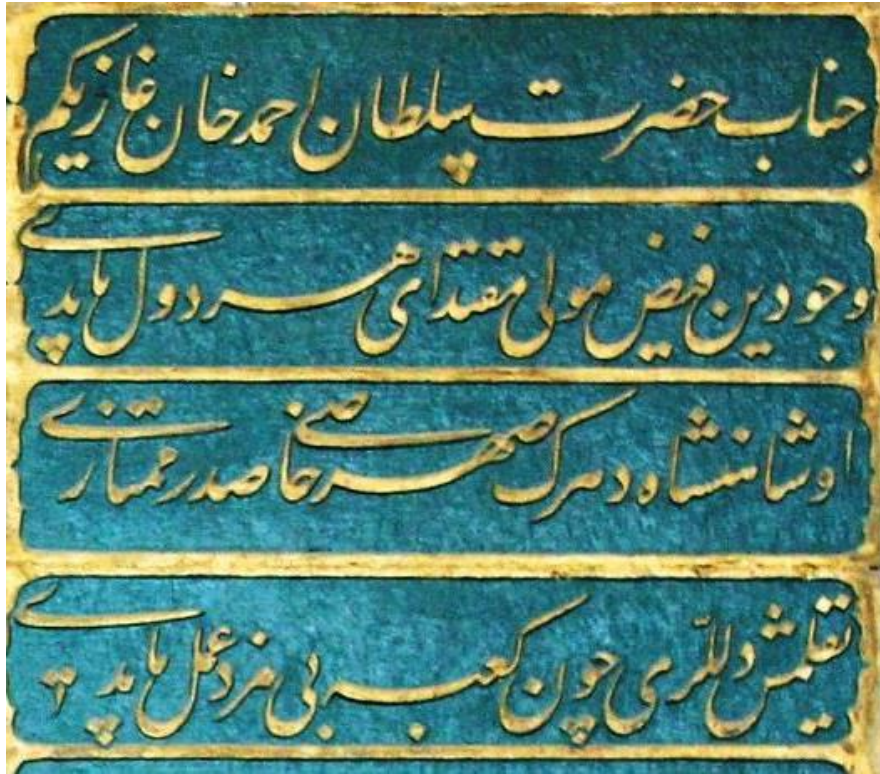 جناب حضرت سلطان احمد خان غازیکم
وجودین فیض مولی مقتدای هر دول یاپدی
او شاهنشاه دهرک صهر خاصی صدر ممتازی
یقلمش دللری چون کعبه بی مزد عمل یاپدی